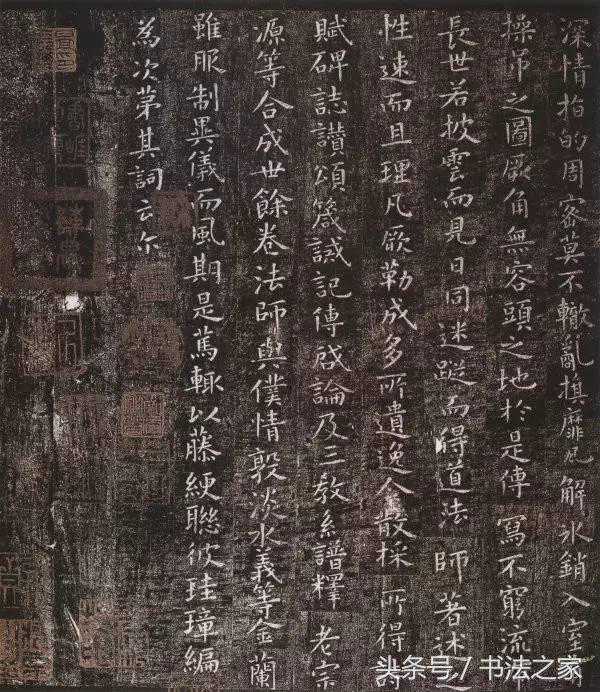 深情指的周密莫不轍亂旗靡尼解氷銷入室
操吊之圖厥角無容頭之地於是傳寫不窮流
長世若披雲而見日同迷蹤而得道法師著述之
性速而且理凡厥勒成多所遺逸今散採所得詩
賦碑誌讃頌箴誡記傳啓論及三教系譜釋老宗
源等合成世餘卷法師與僕情敦淡水義等金蘭
雖服制異儀而風期是篤輙以藤綆聯彼珪璋編
為次第其詞云尔
头条号/书法之家